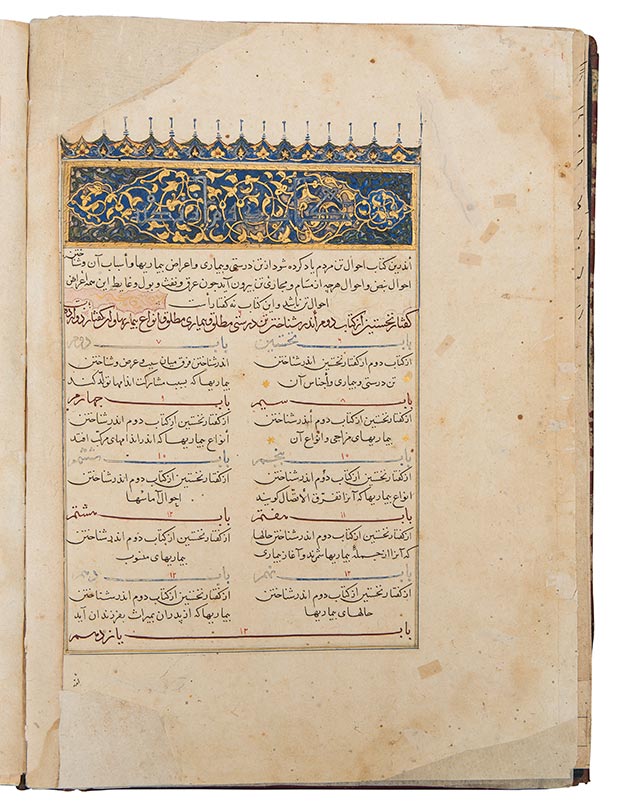 اندرین کتاب احوال تن مردم یاد کرده شود از تن درستی و بیماری و اعراض بیماریها و اسباب آن و شناختن
احوال نبض و احوال هرچه از مسام و مجاری تن بیرون آید چون عرق و نفث و بول و غایط این همه اعراض
احوال تن باشد و این کتاب نه گفتارات
گفتار نخستین از کتاب دوم اندر شناختن تن درستی مطلق و بیماری مطلق و انواع بیماریها و این گفتار دوازده
باب نخستین ٦
باب دوم ٧
از گفتار نخستین از کتاب دوم اندر شناختن
تن درستی و بیماری و اجناس آن
اندر شناختن فرق میان سبب و عرض و شناختن
بیماریها که بسبب مشارکت اندامها تولد کند
باب سیم ٨
باب چهارم ٩
از گفتار نخستین از کتاب دوم اندر شناختن
بیماریهای مزاجی و انواع آن
از گفتار نخستین از کتاب دوم اندر شناختن
انواع بیماریها که اندر اندامهای مرکب افتد
باب پنجم ١٠
باب ششم ١٠
از گفتار نخستین از کتاب دوم اندر شناختن
انواع بیماریها که آنرا تفرق الاتصال گویند
از گفتار نخستین از کتاب دوم اندر شناختن
احوال آماسها
باب هفتم ١١
باب هشتم ١٢
از گفتار نخستین از کتاب دوم اندر شناختن حالها
که آنرا از جمله بیماریها شمرند و آغاز بیماری
از گفتار نخستین از کتاب دوم اندر شناختن
بیماریهای منسوب
باب نهم ١٢
باب دهم ١٢
از گفتار نخستین از کتاب دوم اندر شناختن
حالهای بیماریها
از گفتار نخستین از کتاب دوم اندر شناختن
بیماریها که از پدران بمیراث بفرزندان آید
باب یازدهم ١٢